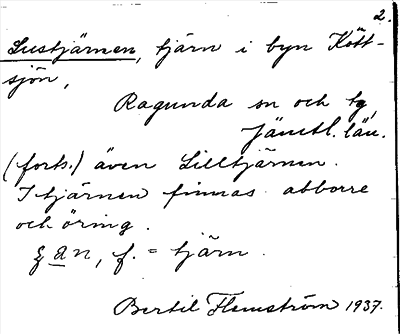 2.
Lustjärnen, tjärn i byn Kött-
sjön,
Ragunda sn och tg,
Jämtl. län.
(forts.) även Lilltjärnen.
I tjärnen finnas abborre
och öring.
an, f. = tjärn.
Bertil Flemström 1937.